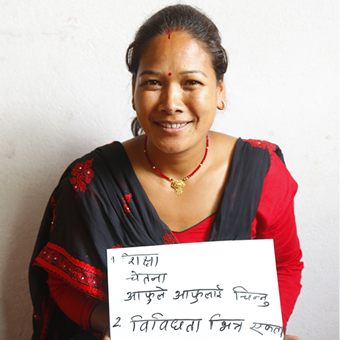 १ शिक्षा
चेतना
आफुले आफुलाई चिन्नु
2 विविधता भित्र एकता